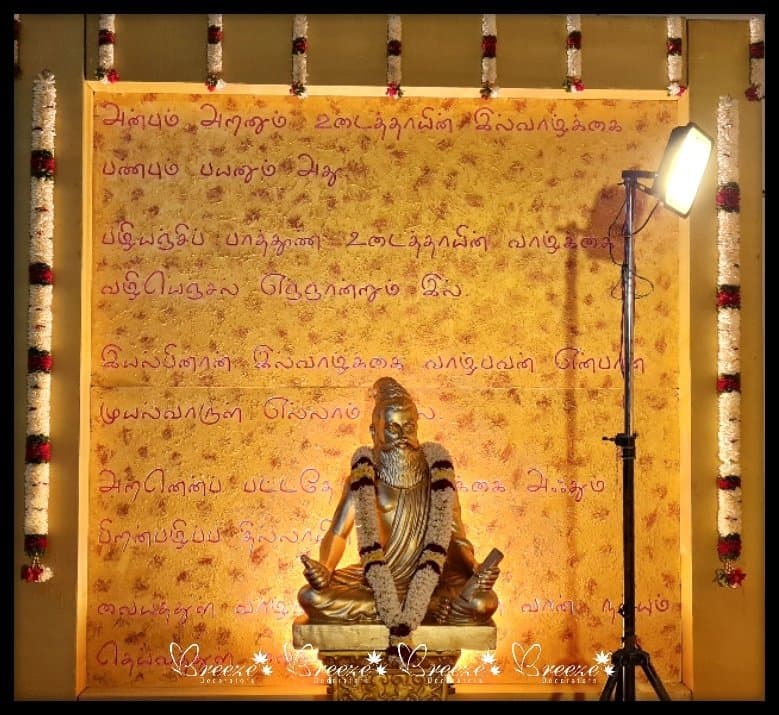 அன்பும் அறனும் உடைத்தாயின் இல்வாழ்க்கை
பண்பும் பயனும் அது
பழியஞ்சிப் பாத்தூண் உடைத்தாயின் வாழ்க்கை
வழியெஞ்சல் எஞ்ஞான்றும் இல்.
இயல்பினான் இல்வாழ்க்கை வாழ்பவன் என்பான்
முயல்வாருள் எல்லாம்
அறனென்ப பட்டதே அஃதும்
பிறன்பழிப்ப
வையத்துள்
தெய்வத்துள்
Breeze Decorators Breeze Decorators Breeze Decorators Breeze Decorators